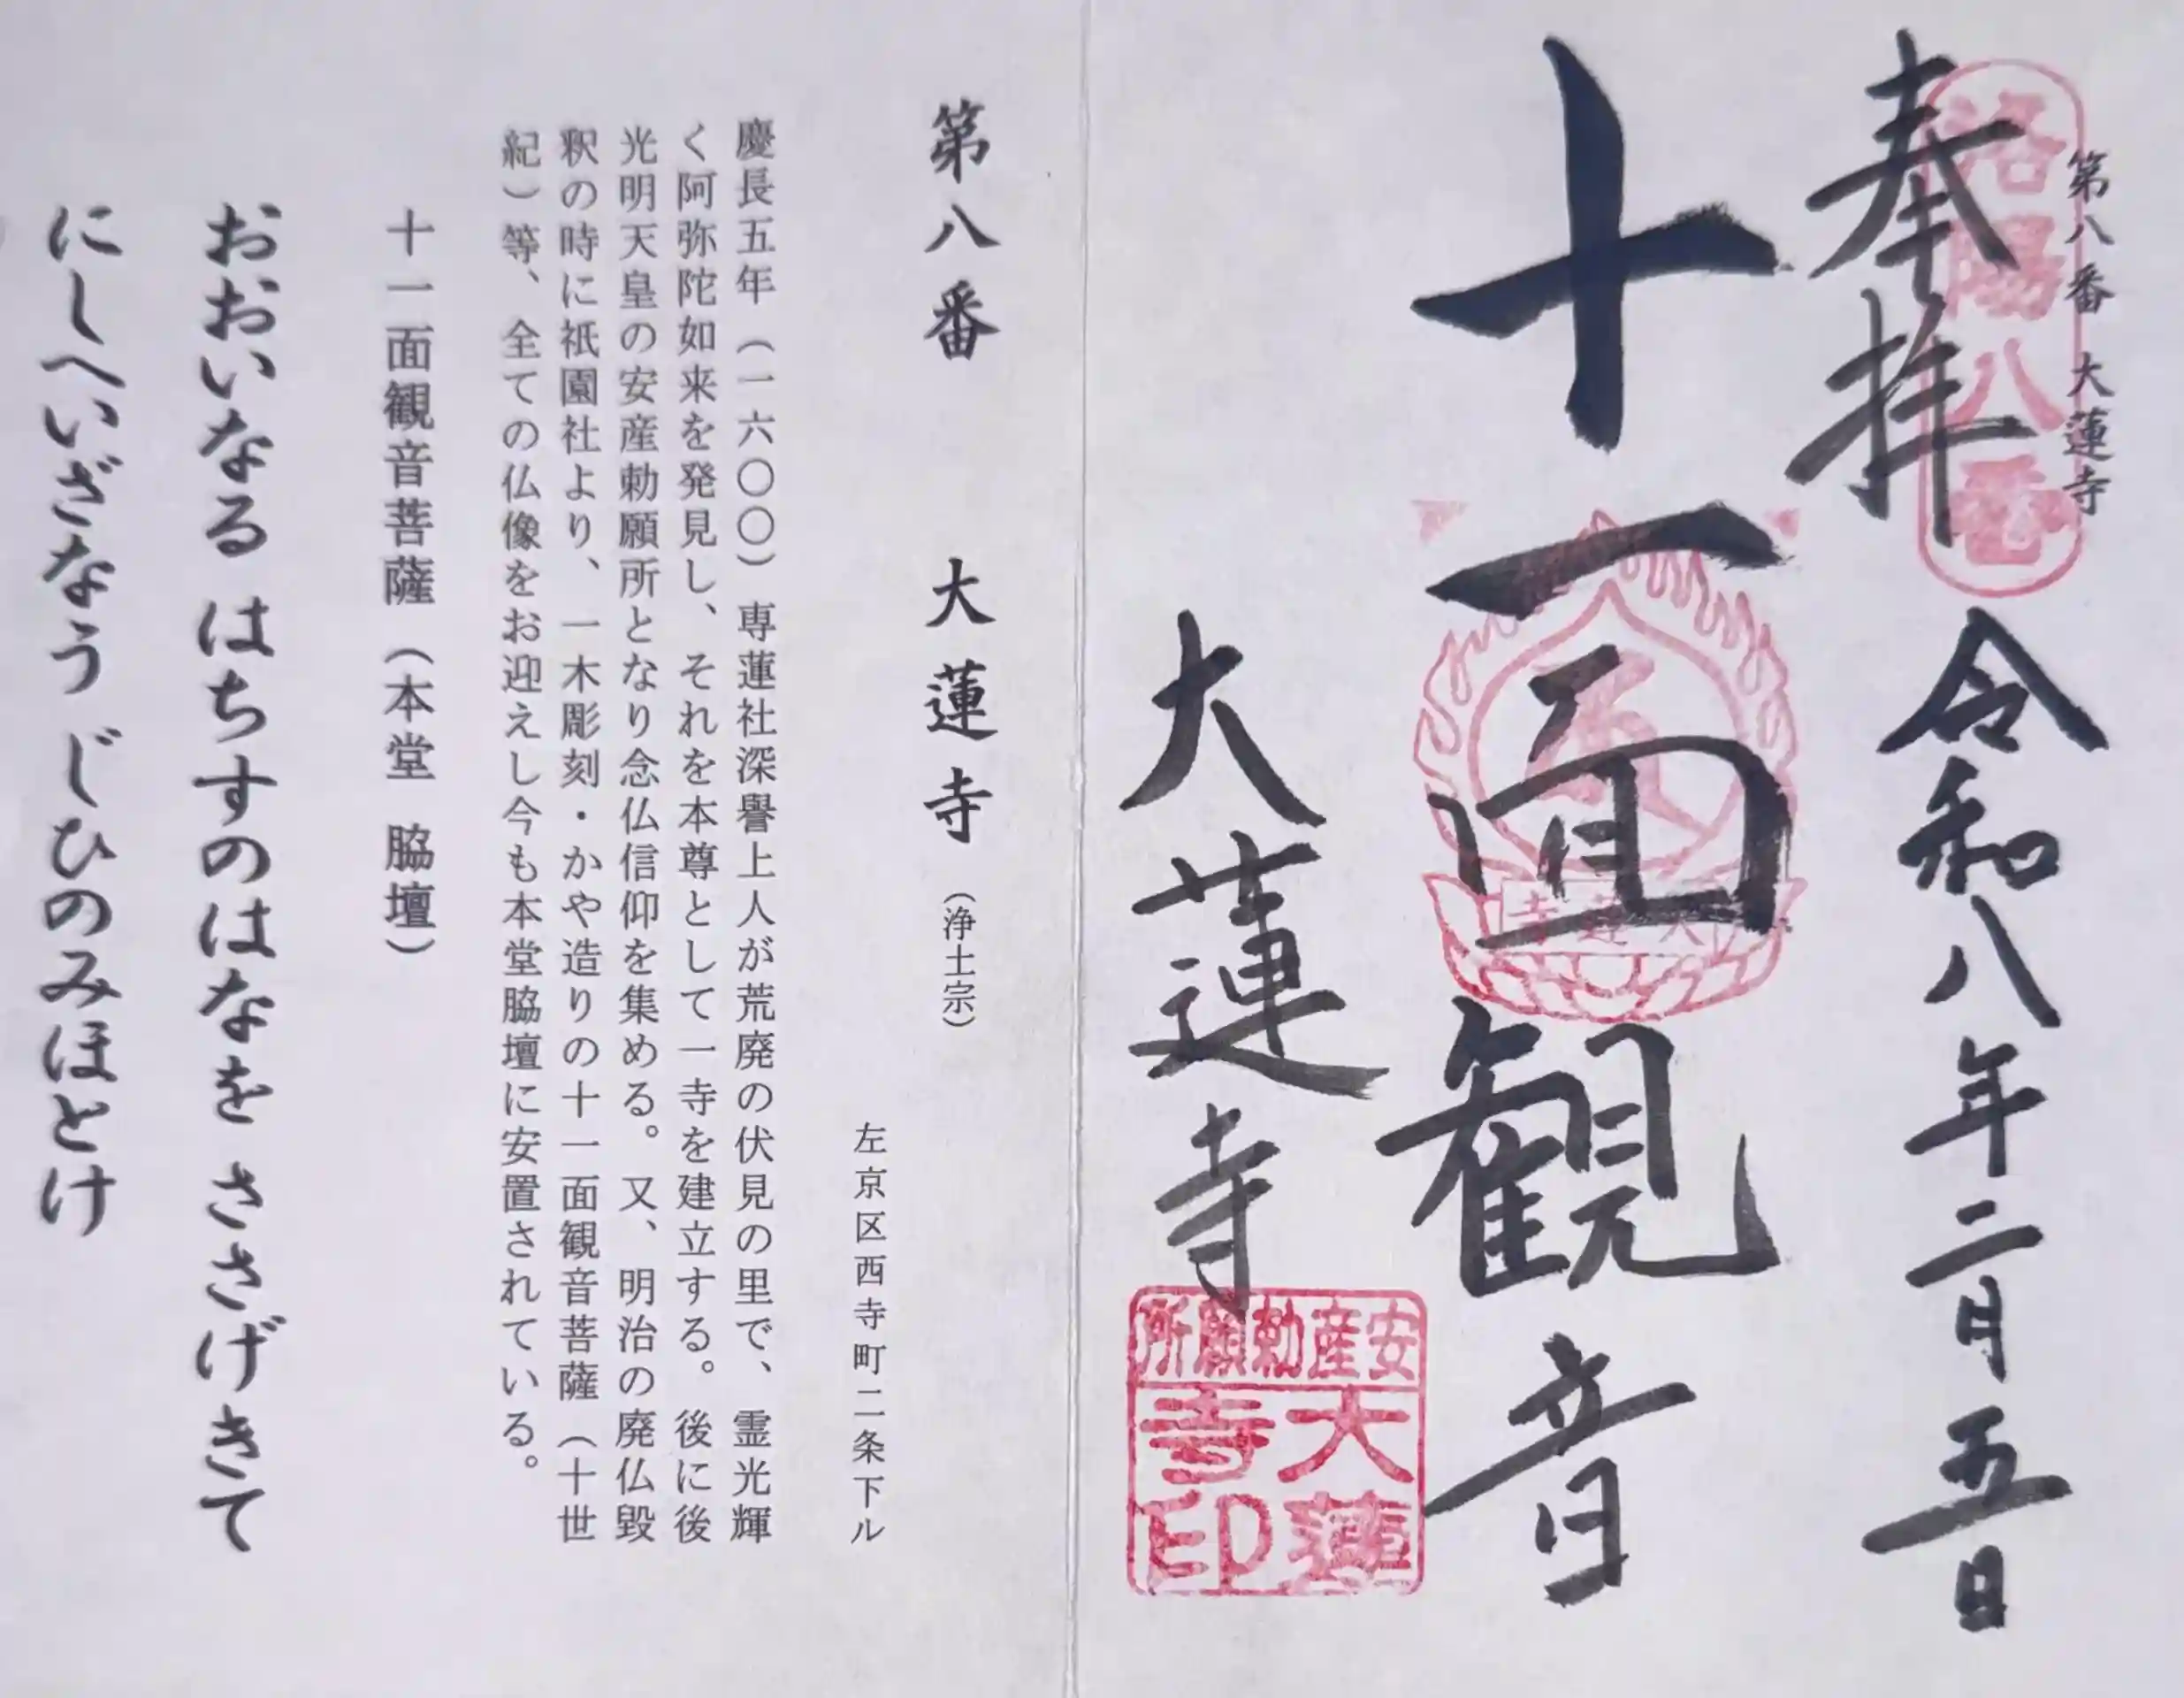 第八番 大蓮寺
洛陽八番
奉拝 令和八年二月五日
十一面観音
大蓮寺
大蓮寺
安産勅願所
大蓮寺印
第八番 大蓮寺（浄土宗）
左京区西寺町二条下ル
慶長五年（一六〇〇）専蓮社深譽上人が荒廃の伏見の里で、霊光輝
く阿弥陀如来を発見し、それを本尊として一寺を建立する。後に後
光明天皇の安産勅願所となり念仏信仰を集める。又、明治の廃仏毀
釈の時に祇園社より、一木彫刻・かや造りの十一面観音菩薩（十世
紀）等、全ての仏像をお迎えし今も本堂脇壇に安置されている。
十一面観音菩薩（本堂 脇壇）
おおいなる はちすのはなを ささげきて
にしへいざなう じひのみほとけ